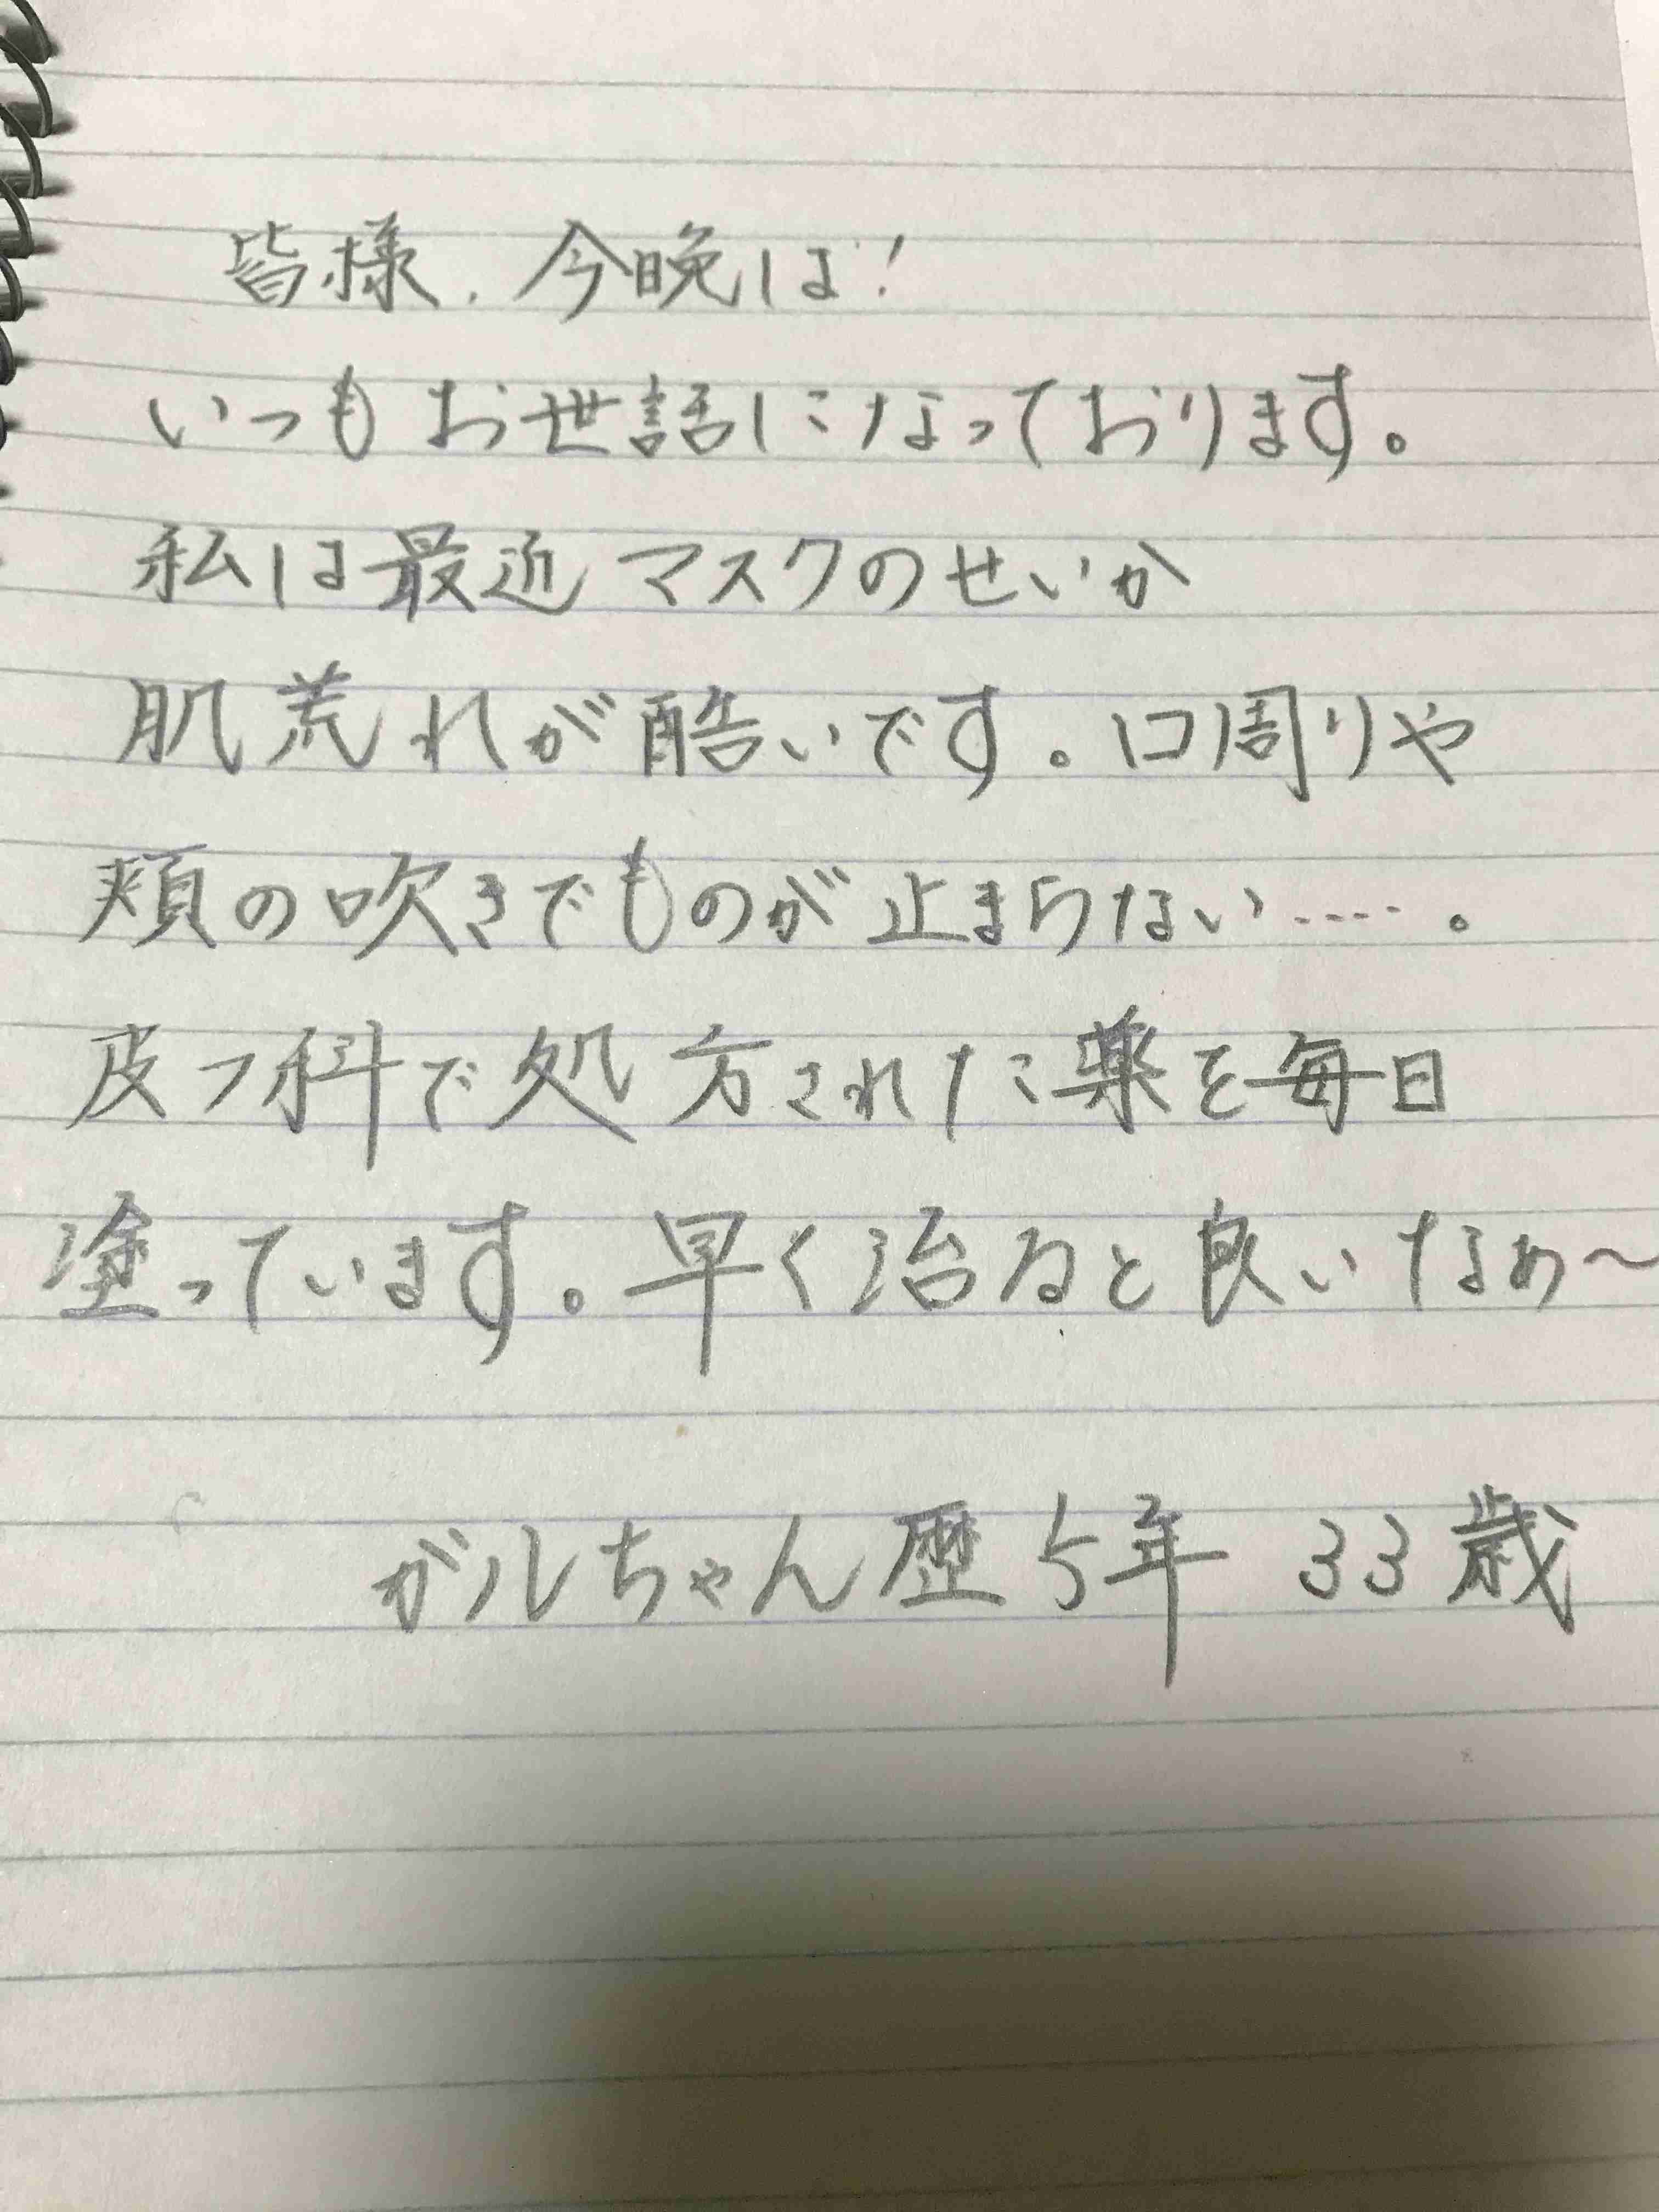 皆様、今晩は!
いつもお世話になっております。
私は最近マスクのせいか
肌荒れが酷いです。口周りや
頬の吹きでものが止まらない……。
皮フ科で処方された薬を毎日
塗っています。早く治ると良いなぁ〜
ガルちゃん歴5年 33歳